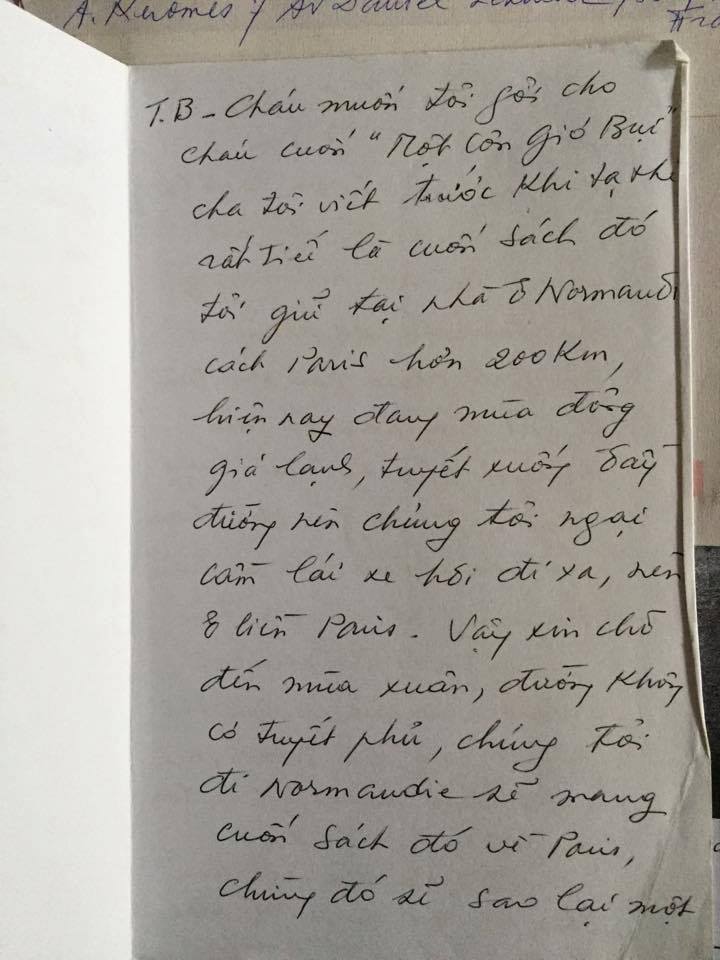 A. Keromes / Av Daniel
T.B - Cháu muốn tôi gởi cho
cháu cuốn "Một Cơn Gió Bụi"
cha tôi viết trước khi tạ thế
rất tiếc là cuốn sách đó
tôi giữ tại nhà ở Normandi
cách Paris hơn 200Km,
hiện nay đang mùa đông
giá lạnh, tuyết xuống đầy
đường nên chúng tôi ngại
cầm lái xe hơi đi xa, nên
ở liền Paris. Vậy xin chờ
đến mùa xuân, đường không
có tuyết phủ, chúng tôi
đi Normandie sẽ mang
cuốn sách đó về Paris,
chừng đó sẽ sao lại một